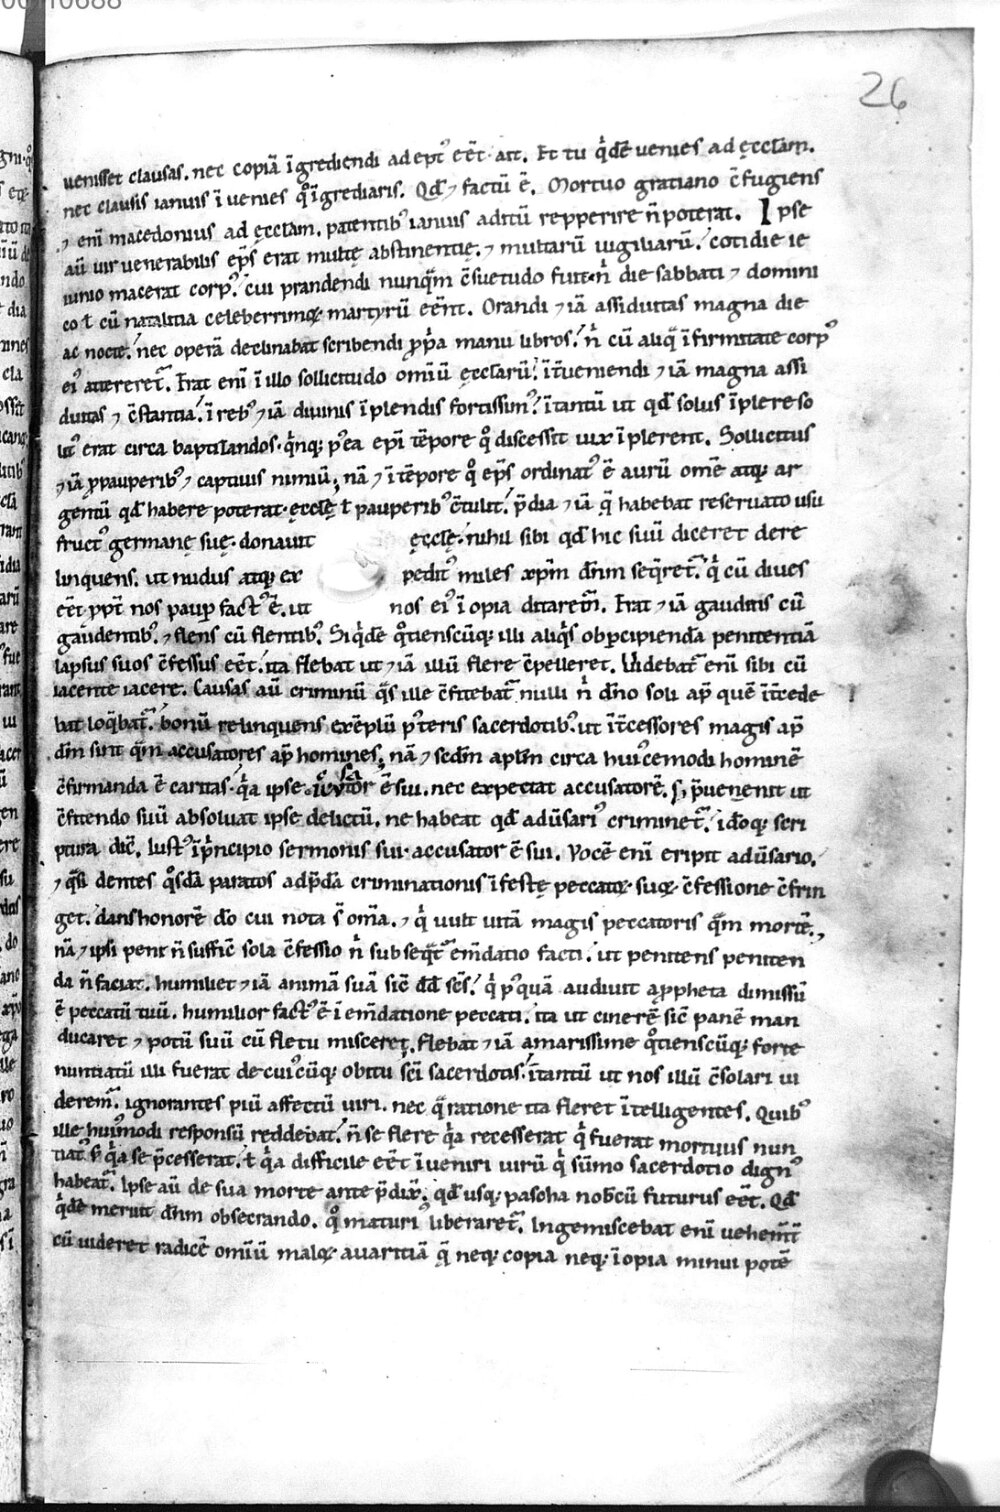 26
uenisset clausas. nec copiā īgrediendi adept᾽ eēt. ait. Et tu q̇dē uenies ad ęcclām.
nec clausis ianuis īuenies q̊ īgrediaris. Qđ ⁊ factū ē. Mortuo gratiano c̄fugiens
⁊ enī macedonius ad ęcclam. patentib᾽ ianuis aditū repperire n̄ poterat. Ipse
aū uir uenerabilis ep̄s erat multę abstinentię. ⁊ multarū uigiliarū. cotidie ie
iunio macerat corp᾽. cui prandendi nunq̄m c̄suetudo fuit. n̍ die sabbati ⁊ domini
co ł cū natalitia celeberrimoꝝ martyrū eēnt. Orandi ⁊ iā assiduitas magna die
ac nocte. nec operā declinabat scribendi ꝓp̍a manu libros. n̍ cū aliq̄ īfirmitate corp᾽
ei᾽ attereret᾽. Erat enī ī illo sollicitudo omīū ęcclarū. īt̄ueniendi ⁊ iā magna assi
duitas ⁊ c̄stantia. ī reb᾽ ⁊ iā diuinis īplendis fortissim᾽. ītantū ut qđ solus īplere so
lit᾽ erat circa baptizandos. q̍nqꝫ p᾽ea ep̄i tēpore q̊ discessit uix īplerent. Sollicitus
⁊ iā ꝓ pauperib᾽ ⁊ captiuis nimiū. nā ⁊ ī tēpore q̊ ep̄s ordinat᾽ ē aurū omē atqꝫ ar
gentū qđ habere poterat. ęcclę ł pauperib᾽ c̄tulit. p̄dia ⁊ iā q̄ habebat reseruato usu
fruct᾽ germanę suę. donauit ęcclę. nihil sibi qđ hic suū diceret dere
linquens. ut nudus atqꝫ ex pedit᾽ miles xp̄m dn̄m seq̄ret᾽. q̍ cū diues
eēt ꝓpt̄ nos paup̱ fact᾽ ē. ut nos ei᾽ īopia ditarem᾽. Erat ⁊ iā gaudens cū
gaudentib᾽. ⁊ flens cū flentib᾽. Siq̇dē q̊tienscūqꝫ illi aliq̍s ob p̱cipiendā penitentiā
lapsus suos c̄fessus eēt. ita flebat ut ⁊ iā illū flere c̄pelleret. Uidebat᾽ enī sibi cū
iacente iacere. Causas aū criminū q̄s ille c̄fitebat᾽ nulli n̍ dn̄o soli ap̱ quē īt̄cede
bat loq̄bat᾽. bonū relinquens exēplū p᾽teris sacerdotib᾽. ut īt̄cessores magis ap̱
dm̄ sint q̄m accusatores ap̱ homines. nā ⁊ sedm̄ aplm̄ circa hui᾽cemodi hominē
c̄firmanda ē caritas. q̍a ipse
ē sui. nec expectat accusatorē. s; p̄uenerit ut
c̄fitendo suū absoluat ipse delictū. ne habeat qđ adūsari᾽ criminet᾽. idoqꝫ scri
ptura dic̄. Iust᾽ ī p̍ncipio sermonis sui. accusator ē sui. Vocē enī eripit adūsario.
⁊ q̄si dentes q̊sdā paratos ad p̄dā criminationis īfestę peccatoꝝ suoꝝ c̄fessione c̄frin
get. dans honorē dō cui nota s̄ omīa. ⁊ q̍ uult uitā magis peccatoris q̄m mortē.
nā ⁊ ipsi penit n̄ suffic̄ sola c̄fessio n̍ subseq̄t᾽ em̄datio facti. ut penitens peniten
da n̄ faciat. humiliet ⁊ iā animā suā sic̄ dđ sc̄s. q̍ p᾽quā audiuit a ꝓpheta dimissū
ē peccatū tuū. humilior fact᾽ ē ī em̄datione peccati. ita ut cinerē sic̄ panē man
ducaret ⁊ potū suū cū fletu misceret. flebat ⁊ iā amarissime q̊tienscūqꝫ forte
nuntiatū illi fuerat de cui᾽cūqꝫ obitu sc̄i sacerdotis. ītantū ut nos illū c̄solari ui
derem᾽. ignorantes piū affectū uiri. nec q̄ ratione ita fleret ītelligentes. Quib᾽
ille hui᾽modi responsū reddebat. n̄ se flere q̍a recesserat q̍ fuerat mortuus nun
tiat᾽ s; q̍a se p̄cesserat. ł q̍a difficile eēt īueniri uirū q̍ sūmo sacerdotio dign᾽
habeat᾽. Ipse aū de sua morte ante p̄dix̄. qđ usqꝫ pascha nob̄cū futurus eēt. Qđ
q̇dē meruit dn̄m obsecrando. q̊ maturi᾽ liberaret᾽. Ingemiscebat enī uehem̄t̄
cū uideret radicē omīū maloꝝ auaritiā q̄ neqꝫ copia neqꝫ īopia minui potē